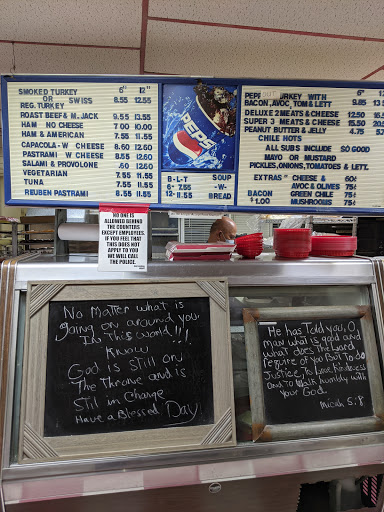 6" 12"
SMOKED TURKEY
OR SWISS 8.55 12.55
REG. TURKEY
ROAST BEEF & M. JACK 9.55 13.55
HAM NO CHEESE 7.00 10.00
HAM & AMERICAN 7.55 11.55
CAPACOLA-W CHEESE 8.60 12.60
PASTRAMI - W CHEESE 8.55 12.60
SALAMI & PROVOLONE .60 12.60
VEGETARIAN 7.55 11.55
TUNA 7.55 11.55
REUBEN PASTRAMI 8.55 11.55
PEPSI
B-L-T SOUP
6" 7.55 -W-
12-11.55 BREAD
6"
TURKEY WITH
BACON, AVOC, TOM & LETT 9.85
DELUXE 2 MEATS & CHEESE 12.50
SUPER 3 MEATS & CHEESE 15.50
PEANUT BUTTER & JELLY 4.75
CHILE HOTS
ALL SUBS INCLUDE SO GOOD
MAYO OR MUSTARD
PICKLES, ONIONS, TOMATOES & LETT.
EXTRAS" CHEESE & 60¢
AVOC & OLIVES 75¢
BACON GREEN CHILE 75¢
$1.00 MUSHROOMS 75¢
NO ONE IS
ALLOWED BEHIND
THE COUNTERS
EXCEPT EMPLOYEES.
IF YOU FEEL THAT
THIS DOES NOT
APPLY TO YOU
WE WILL CALL
THE POLICE.
No Matter what is
going on around you
In This world!!!
Know
God is Still on
The Throne and is
Still in Charge
Have a Blessed Day
He has Told you, O,
man what is good and
what does The Lord
require of you But To do
Justice, To Love Kindness
and To Walk humbly with
Your God.
Micah 5:8